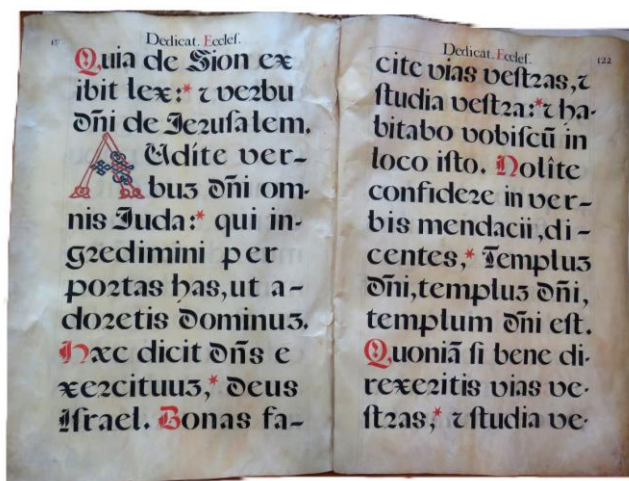 Dedicat. Ecclef.
Quia de Sion ex
ibit lex:* ⁊ verbu
dñi de Jeruſalem.
AUdite ver-
buʒ dñi om-
nis Juda:* qui in-
gꝛedimini per
poꝛtas has, ut a-
doꝛetis dominuʒ.
Hæc dicit dñs e
xeꝛcituuʒ,* deus
Iſrael. Bonas fa-
Dedicat. Eccleſ.
122
cite vias veſtꝛas, ⁊
ſtudia veſtꝛa:* ⁊ ha-
bitabo vobiſcũ in
loco iſto. Nolîte
confideꝛe in ver-
bis mendacii, di-
centes,* Templuʒ
dñi, templuʒ dñi,
templum dñi eſt.
Quoniã ſi bene di-
rexeꝛitis vias ve-
ſtꝛas,* ⁊ ſtudia ve-